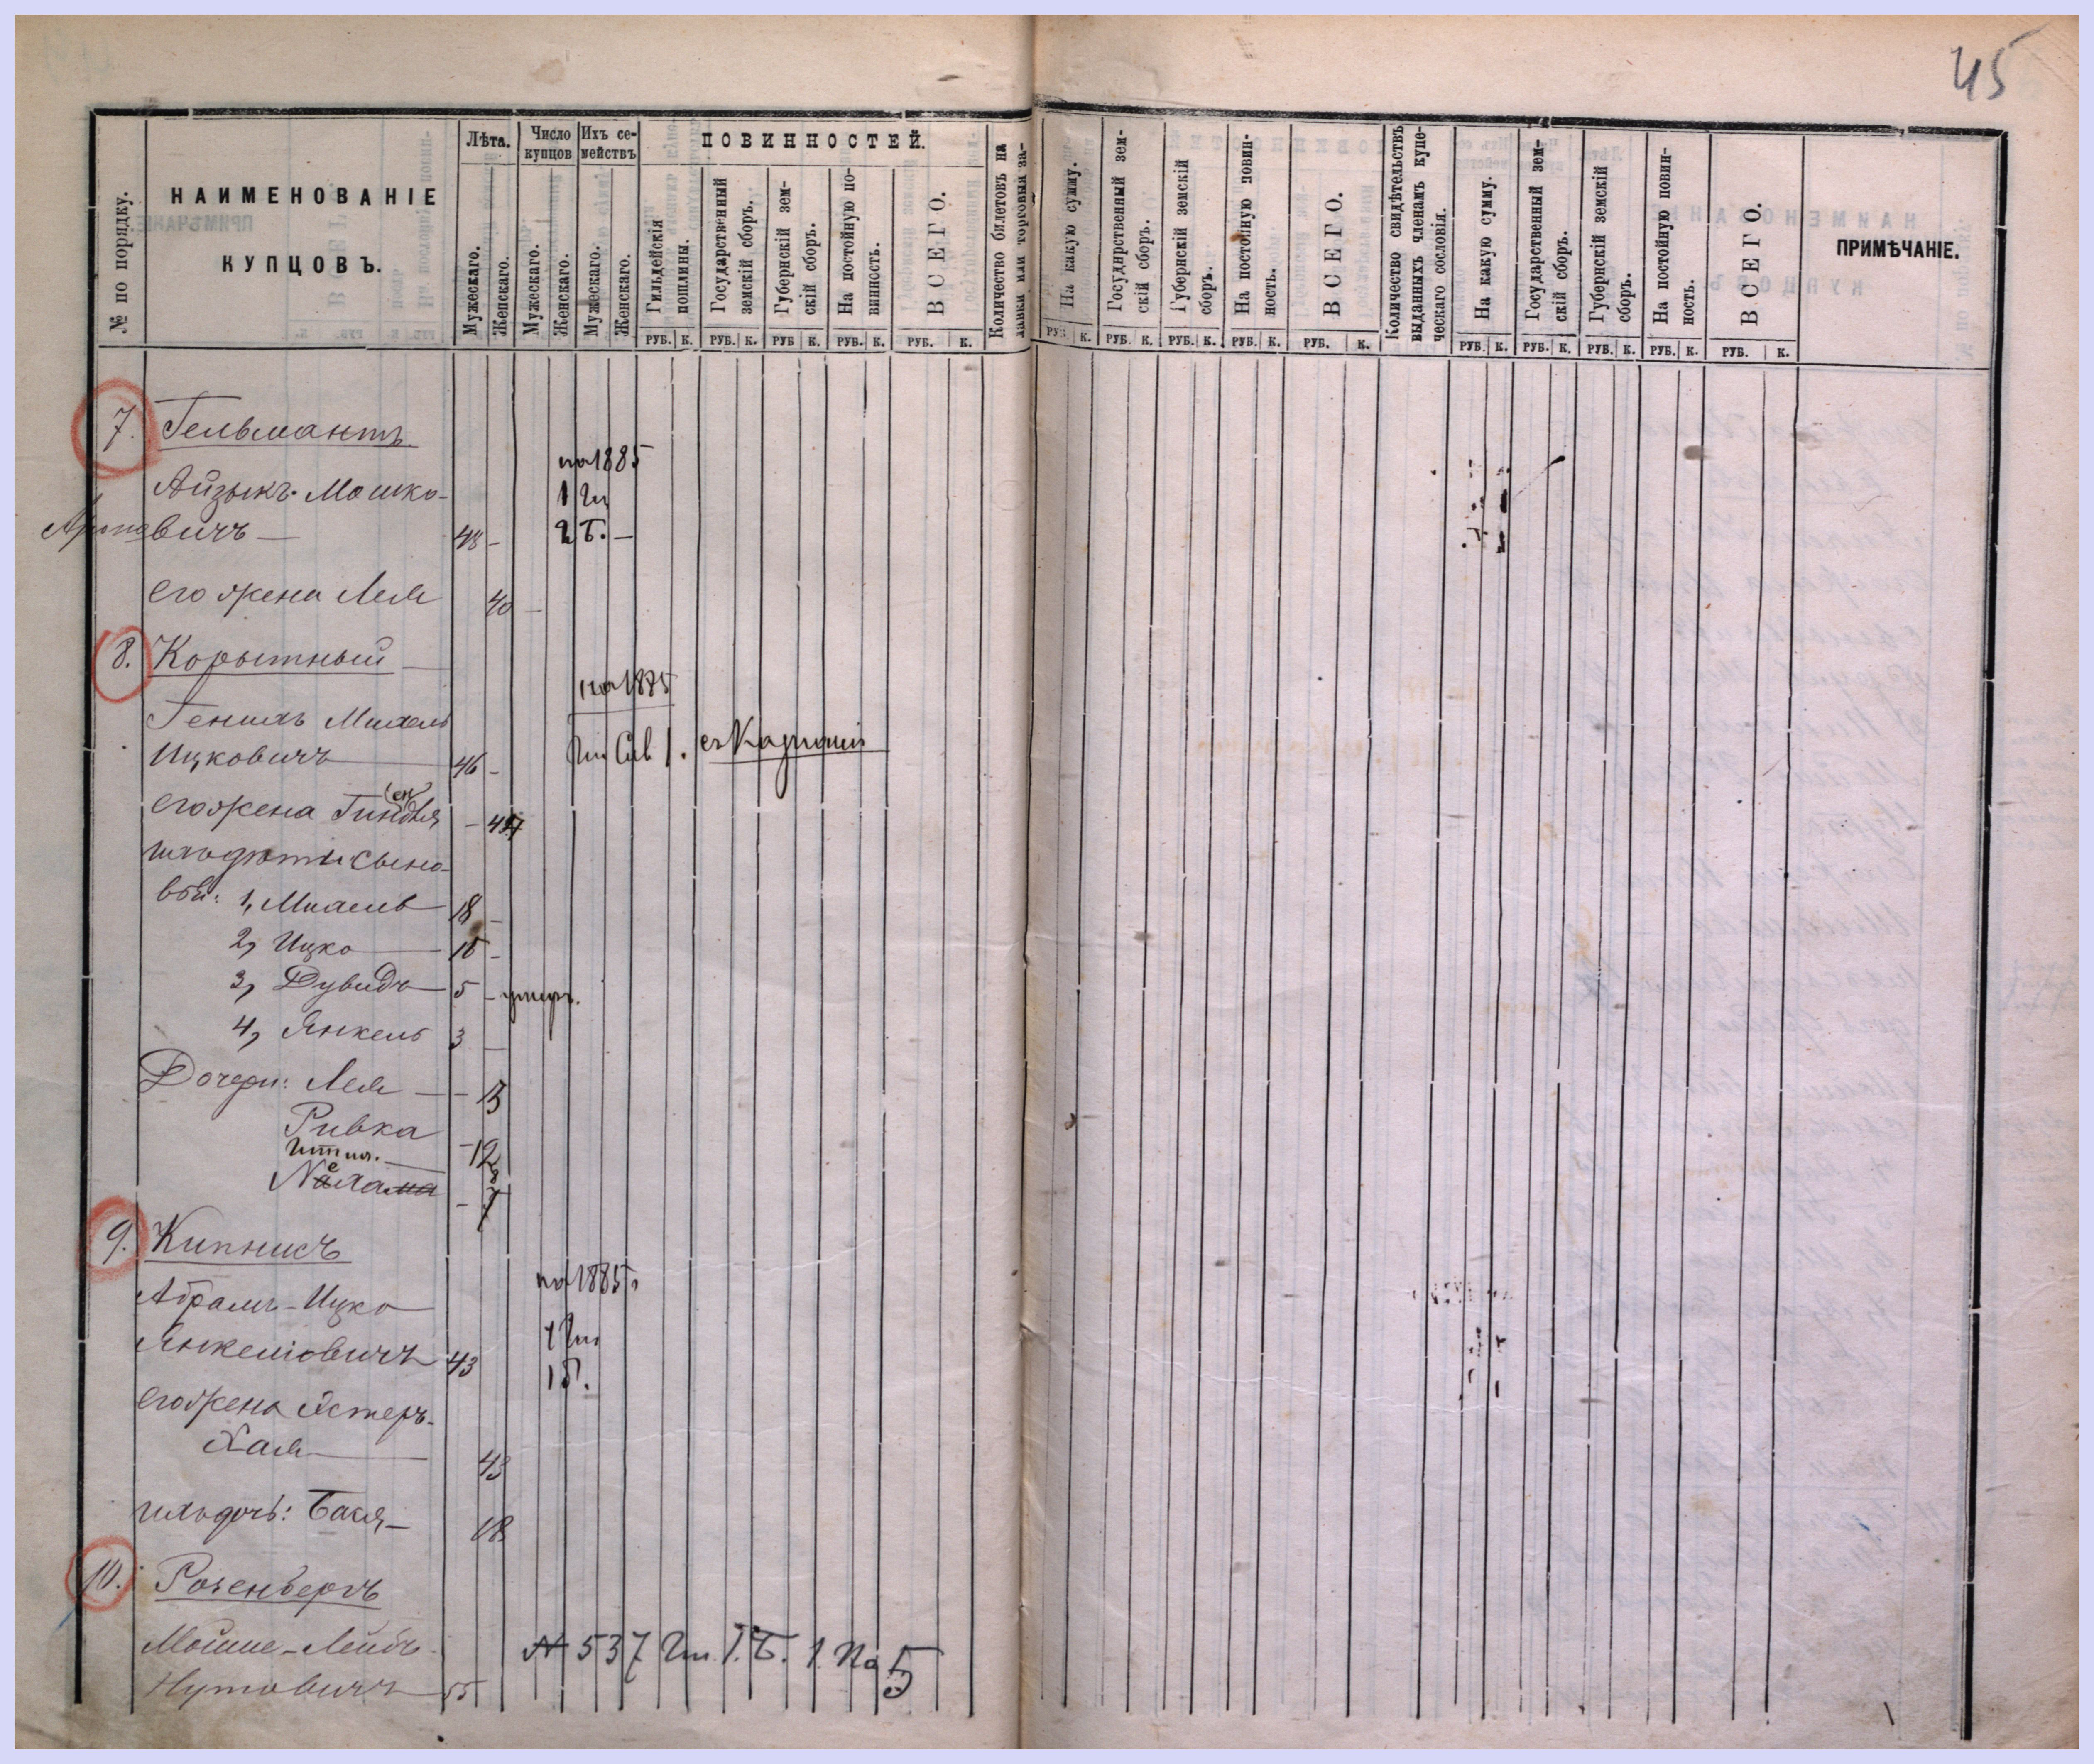 45
№ по порядку.
НАИМЕНОВАНІЕ
КУПЦОВЪ.
Лѣта.
Мужескаго.
Женскаго.
Число купцовъ
Мужескаго.
Женскаго.
Ихъ семействъ
Мужескаго.
Женскаго.
ПОВИННОСТЕЙ.
Гильдейскія пошлины.
Государственный земскій сборъ.
Губернскій земскій сборъ.
На постойную повинность.
ВСЕГО.
Количество билетовъ на лавки или торговыя за-
На какую сумму.
Государственный земскій сборъ.
Губернскій земскій сборъ.
На постойную повинность.
ВСЕГО.
Количество свидѣтельствъ выданныхъ членамъ купеческаго сословія.
На какую сумму.
Государственный земскій сборъ.
Губернскій земскій сборъ.
На постойную повинность.
ВСЕГО.
ПРИМѢЧАНІЕ.
РУБ. К. РУБ. К. РУБ К. РУБ. К. РУБ. К. РУБ. К. РУБ. К. РУБ. К. РУБ. К. РУБ. К. РУБ. К. РУБ. К. РУБ. К. РУБ. К. РУБ. К.
7. Гельмантъ
на 1885
Айзыкъ Мошко-
1 Ги
Ароновичъ — 48 –
2 Б. –
его жена Лея 40 –
8. Корытный —
на 1885
Михель
Ицковичъ 46 –
Гил Свѣ 1.
его жена – 44
сыно-
вья: 1, Михель 18 –
2, Ицко 15 –
3, Дувидъ 5 – умеръ.
4, Янкель 3 –
Дочери: Лея – 13
Ривка
– 12
9. Кипнисъ
на 1885 г
Абрамъ-Ицко
1 Ги
Янкеліовичъ 43
1 Б.
его жена Эстеръ-
Хая 43
дочь: Бася – 18
10. Розенбергъ
Мойше-Лейбъ
№ 537 Ги. 1. Б. 1 № 5
Нутовичъ 55